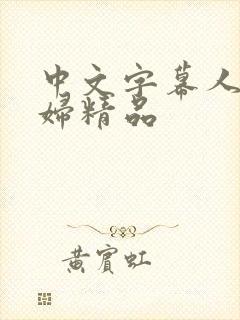 中文字幕人
婦精品
黄賓虹